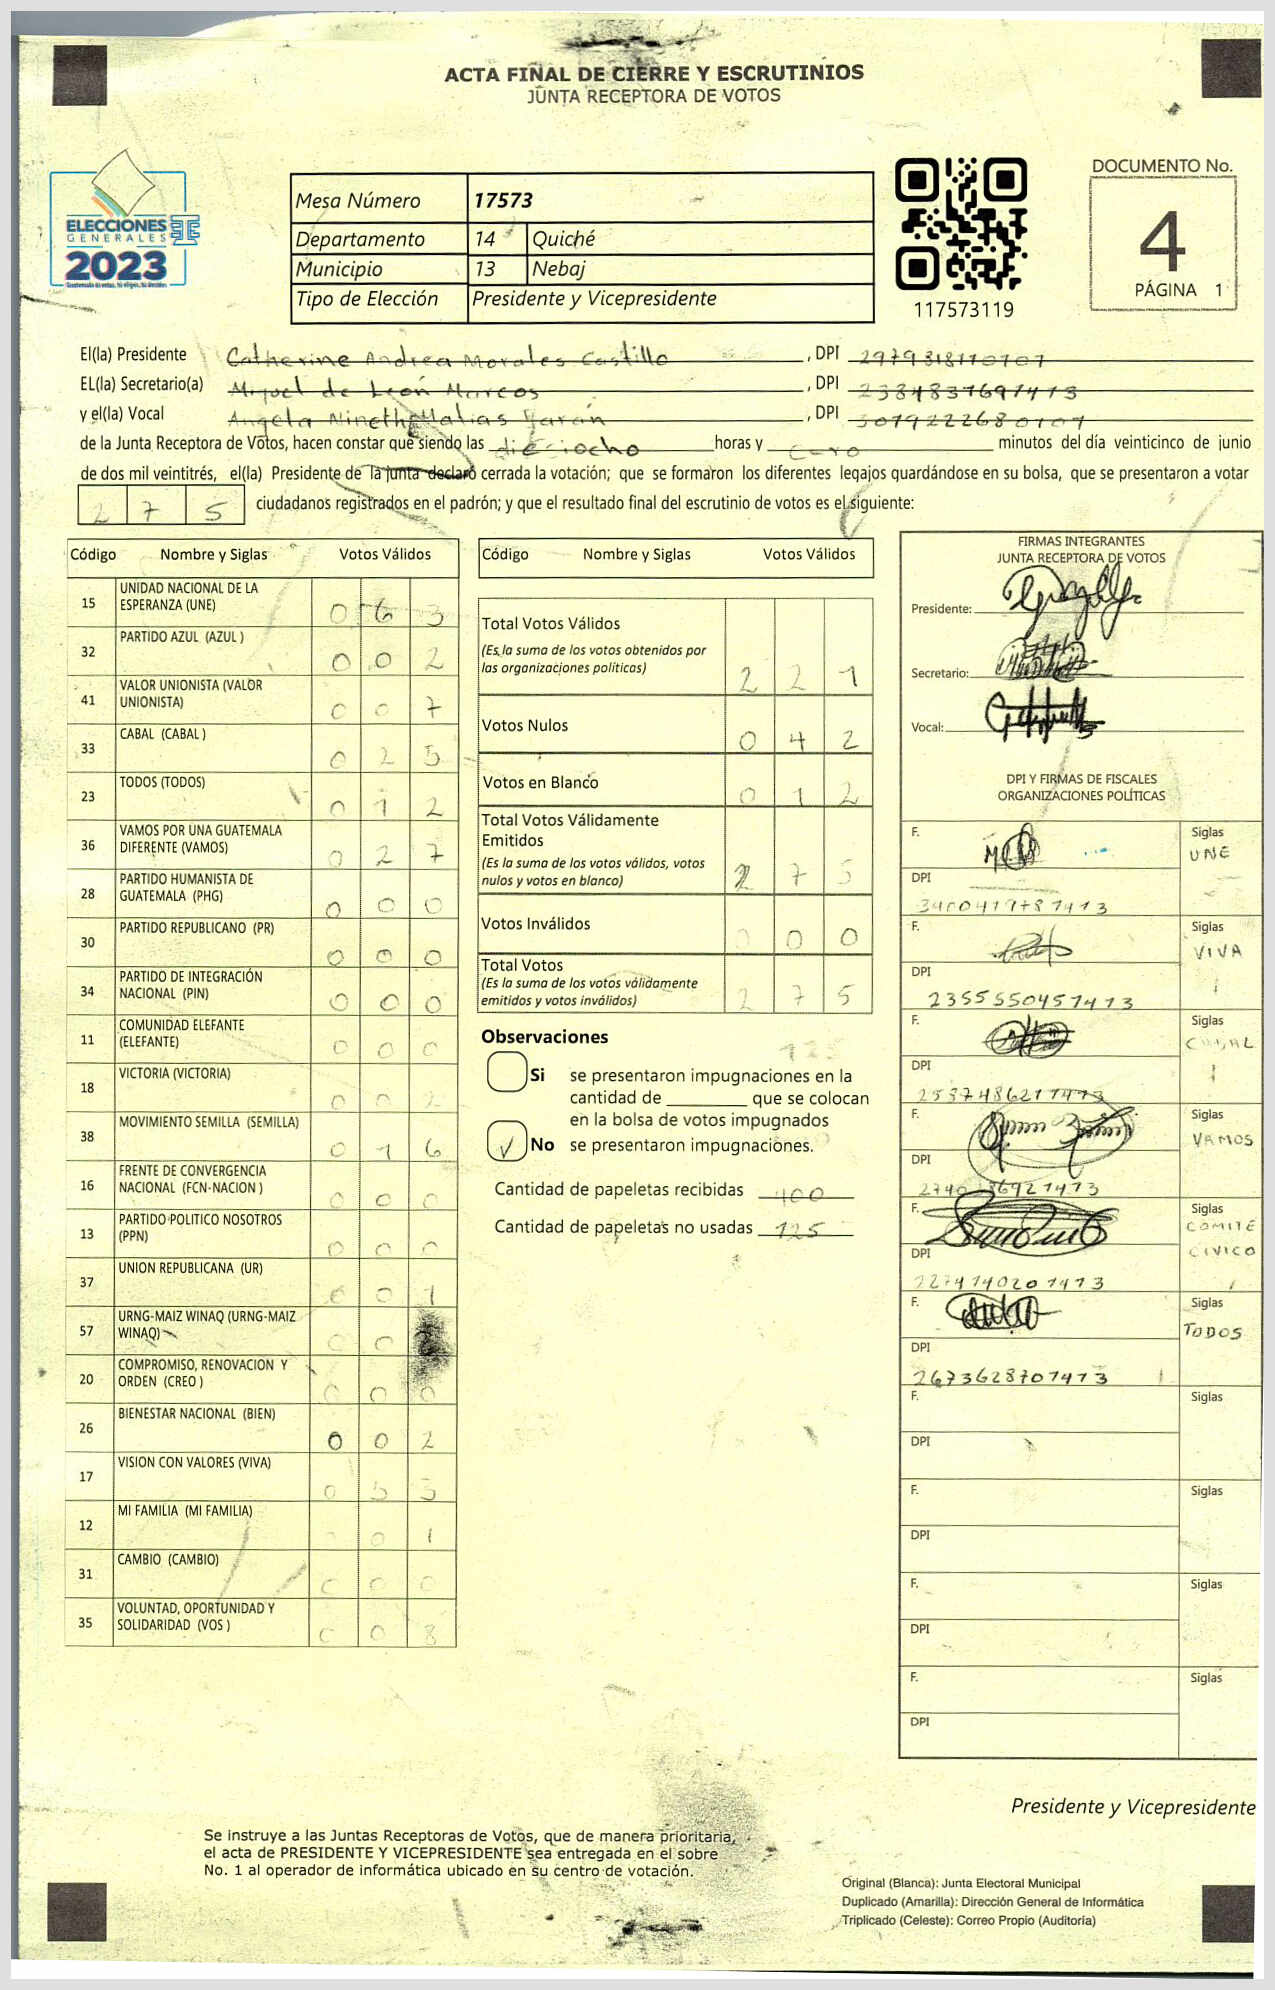 ACTA FINAL DE CIERRE Y ESCRUTINIOS
JUNTA RECEPTORA DE VOTOS
ELECCIONES
GENERALES
2023
Mesa Número 17573
Departamento 14 Quiché
Municipio 13 Nebaj
Tipo de Elección Presidente y Vicepresidente
117573119
DOCUMENTO No.
4
PÁGINA 1
El(la) Presidente Catherine Andrea Morales Castillo , DPI
EL(la) Secretario(a) Miguel de León Marcos , DPI
y el(la) Vocal Angela Nineth Matias , DPI
de la Junta Receptora de Votos, hacen constar que siendo las dieciocho horas y cero minutos del día veinticinco de junio
de dos mil veintitrés, el(la) Presidente de la junta declaró cerrada la votación; que se formaron los diferentes legajos quardándose en su bolsa, que se presentaron a votar
2 7 5 ciudadanos registrados en el padrón; y que el resultado final del escrutinio de votos es el siguiente:
Código Nombre y Siglas Votos Válidos
15 UNIDAD NACIONAL DE LA ESPERANZA (UNE) 0 6 3
32 PARTIDO AZUL (AZUL ) 0 0 2
41 VALOR UNIONISTA (VALOR UNIONISTA) 0 0 7
33 CABAL (CABAL ) 0 2 5
23 TODOS (TODOS) 0 1 2
36 VAMOS POR UNA GUATEMALA DIFERENTE (VAMOS) 0 2 7
28 PARTIDO HUMANISTA DE GUATEMALA (PHG) 0 0 0
30 PARTIDO REPUBLICANO (PR) 0 0 0
34 PARTIDO DE INTEGRACIÓN NACIONAL (PIN) 0 0 0
11 COMUNIDAD ELEFANTE (ELEFANTE) 0 0 0
18 VICTORIA (VICTORIA) 0 0 2
38 MOVIMIENTO SEMILLA (SEMILLA) 0 1 6
16 FRENTE DE CONVERGENCIA NACIONAL (FCN-NACION ) 0 0 0
13 PARTIDO POLITICO NOSOTROS (PPN) 0 0 0
37 UNION REPUBLICANA (UR) 0 0 1
57 URNG-MAIZ WINAQ (URNG-MAIZ WINAQ) 0 0
20 COMPROMISO, RENOVACION Y ORDEN (CREO ) 0 0 0
26 BIENESTAR NACIONAL (BIEN) 0 0 2
17 VISION CON VALORES (VIVA) 0 5 3
12 MI FAMILIA (MI FAMILIA) 0 0 1
31 CAMBIO (CAMBIO) 0 0 0
35 VOLUNTAD, OPORTUNIDAD Y SOLIDARIDAD (VOS ) 0 0 8
Código Nombre y Siglas Votos Válidos
Total Votos Válidos 2 2 1
(Es la suma de los votos obtenidos por
las organizaciones políticas)
Votos Nulos 0 4 2
Votos en Blanco 0 1 2
Total Votos Válidamente
Emitidos 2 7 5
(Es la suma de los votos válidos, votos
nulos y votos en blanco)
Votos Inválidos 0 0 0
Total Votos 2 7 5
(Es la suma de los votos válidamente
emitidos y votos inválidos)
Observaciones
Si se presentaron impugnaciones en la
cantidad de ________ que se colocan
en la bolsa de votos impugnados
✓ No se presentaron impugnaciones.
Cantidad de papeletas recibidas 400
Cantidad de papeletas no usadas 125
FIRMAS INTEGRANTES
JUNTA RECEPTORA DE VOTOS
Presidente:
Secretario:
Vocal:
DPI Y FIRMAS DE FISCALES
ORGANIZACIONES POLÍTICAS
F. Siglas UNE
DPI
F. Siglas VIVA
DPI 2355550457413
F. Siglas CABAL
DPI
F. Siglas VAMOS
DPI
F. Siglas COMITE CIVICO
DPI
F. Siglas TODOS
DPI 2673628701413
F. Siglas
DPI
F. Siglas
DPI
F. Siglas
DPI
F. Siglas
DPI
Presidente y Vicepresidente
Se instruye a las Juntas Receptoras de Votos, que de manera prioritaria,
el acta de PRESIDENTE Y VICEPRESIDENTE sea entregada en el sobre
No. 1 al operador de informática ubicado en su centro de votación.
Original (Blanca): Junta Electoral Municipal
Duplicado (Amarilla): Dirección General de Informática
Triplicado (Celeste): Correo Propio (Auditoría)